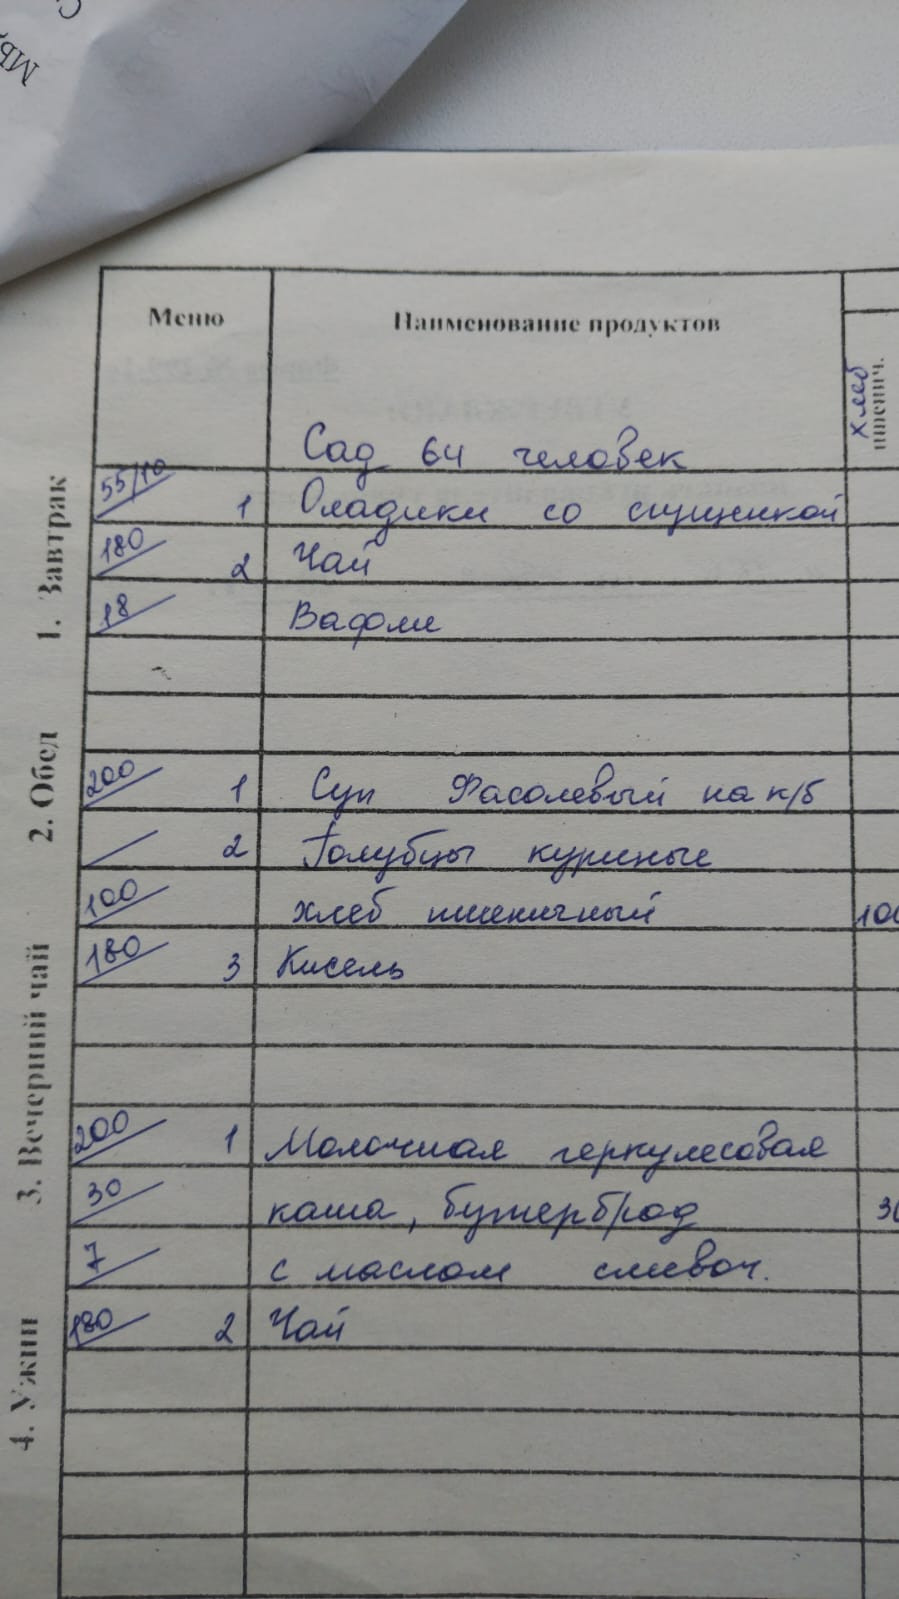 Меню Наименование продуктов
хлеб
пшенич.
Сад 64 человек
1. Завтрак
55/10 1 Оладики со сгущенкой
180 2 Чай
18 Вафли
2. Обед
200 1 Суп Фасолевый на к/б
2 Голубцы куриные
100 хлеб пшеничный 100
180 3 Кисель
3. Вечерний чай
200 1 Молочная геркулесовая
30 каша, бутерброд 30
7 с маслом сливоч.
180 2 Чай
4. Ужин